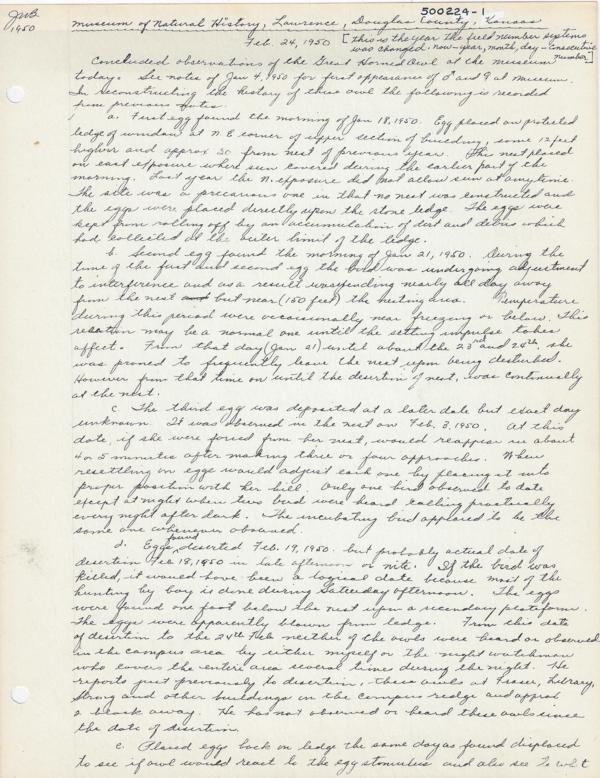 JWB
1950
500224-1
Museum of Natural History, Lawrence, Douglas County, Kansas
Feb. 24, 1950 [This is the year the field number systems
was changed. now-year, month, day - consecutive
number]
Concluded observations of the Great Horned Owl at the museum
today. See notes of Jan 4, 1950 for first appearance of ♂ and ♀ at museum.
In reconstructing the history of these owls the following is recorded
from previous notes.
a. First egg found the morning of Jan 18, 1950. Egg placed on protected
ledge of window at N.E corner of upper section of building, some 12 feet
higher and approx 30 from nest of previous year. This nest placed
on east exposure where sun covered during the earlier part of the
morning. Last year the N. exposure did not allow sun at anytime.
The site was a precarious one in that no nest was constructed and
the eggs were placed directly upon the stone ledge. The eggs were
kept from rolling off by an accumulation of dirt and debris which
had collected at the outer limit of the ledge.
b. Second egg found the morning of Jan 21, 1950. During the
time of the first and second egg the bird was undergoing adjustment
to interference and as a result was spending nearly all day away
from the nest and but near (150 feet) the nesting area. Temperature
during this period were occasionally near freezing or below. This
relation may be a normal one until the setting impulse takes
affect. From that day (Jan 21) until about the 23rd and 25th, she
was proned to frequently leave the nest upon being disturbed.
However from that time on until the desertion of nest, was continually
at the nest.
c The third egg was deposited at a later date but exact day
unknown. It was observed in the nest on Feb. 3, 1950. At this
date, if she were forced from her nest, would reappear in about
4 or 5 minutes after making three or four approaches. When
resettling on eggs would adjust each one by placing it into
proper position with her bill. Only one bird observed to date
except at night when two bird were heard calling practically
every night after dark. The incubating bird appeared to be the
same one whenever observed.
d. Eggs found deserted Feb. 19, 1950. but probably actual date of
desertion Feb 18, 1950 in late afternoon or nite. If the bird was
killed, it would have been a logical date because most of the
hunting by boy is done during Saturday afternoon. The eggs
were found one foot below the nest upon a secondary plateform.
The eggs were apparently blown from ledge. From this date
of desertion to the 24th Feb neither of the owls were heard or observed
in the campus area by either myself or the night watchman
who covers the entire area several time during the night. He
reports just previously to desertion, these owls at Fraser, Library,
Strong and other buildings on the campus
a block away. He has not observed or heard these owls since
the date of desertion.
e. Placed eggs back on ledge the same day as found displaced
to see if owl would react to the egg stimulus and also see to what